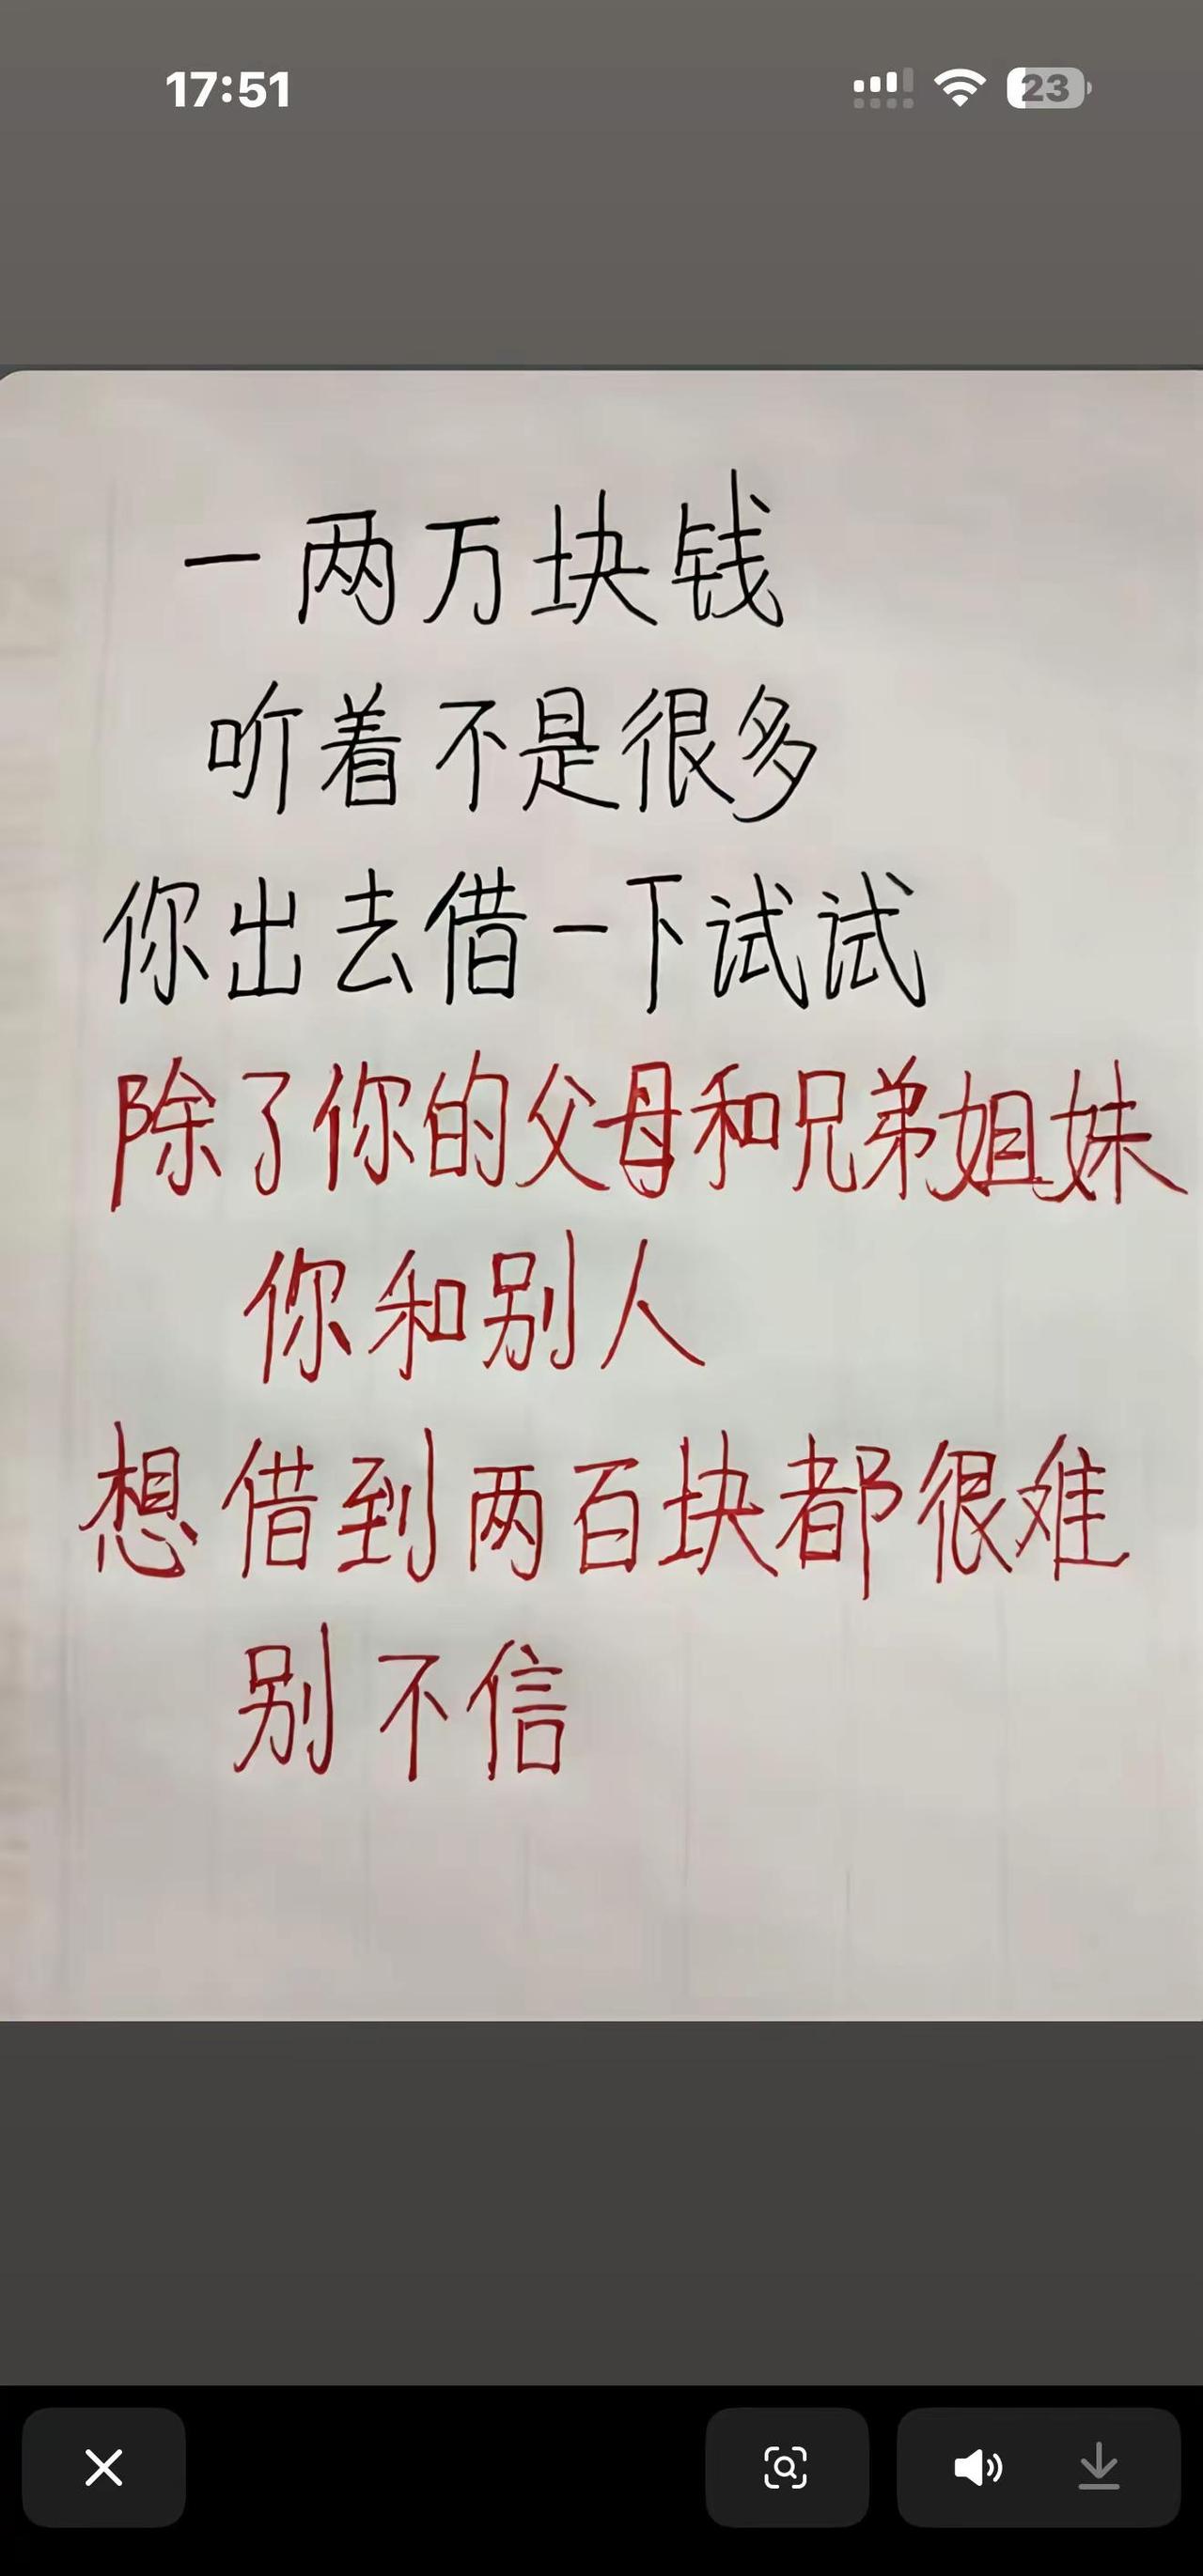 17:51
23
一两万块钱
听着不是很多
你出去借一下试试
除了你的父母和兄弟姐妹
你和别人
想借到两百块都很难
别不信